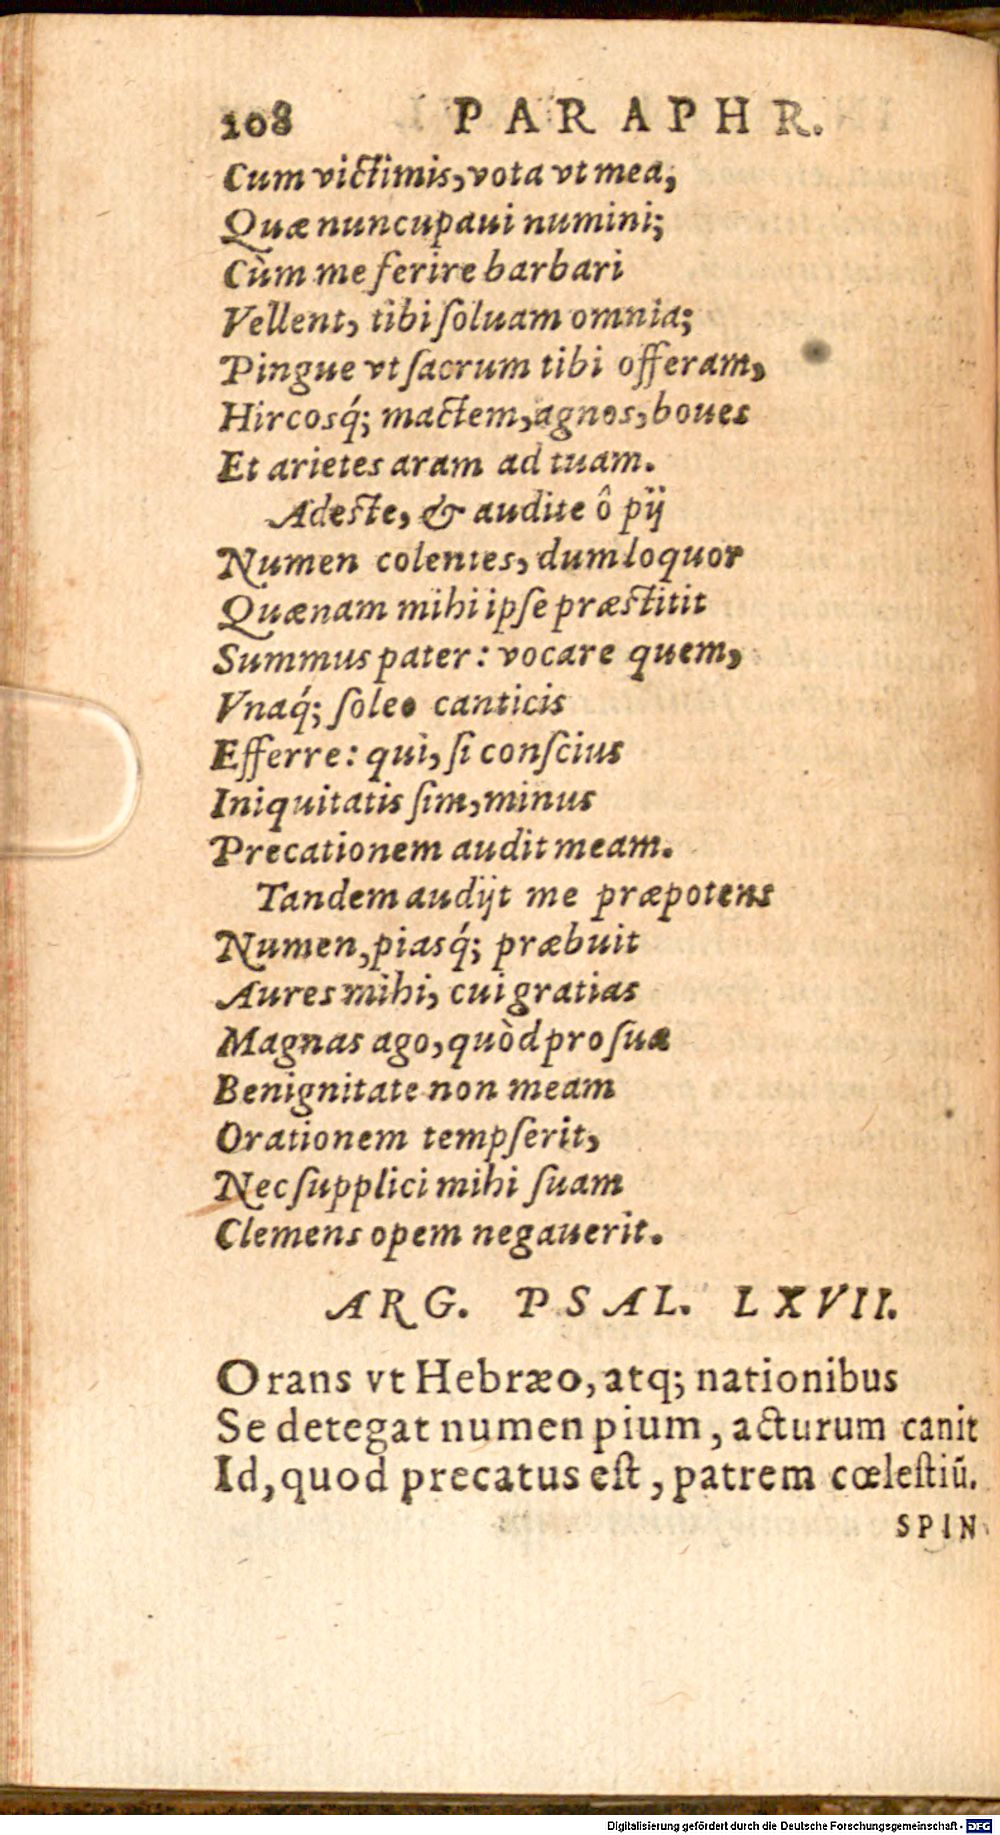 108 PARAPHR.
Cum victimis, vota vt mea,
Quæ nuncupaui numini;
Cùm me ferire barbari
Vellent, tibi ſoluam omnia;
Pingue vt ſacrum tibi offeram,
Hircosq́; mactem, agnos, boues
Et arietes aram ad tuam.
Adeſte, & audite ô pij
Numen colentes, dum loquor
Quænam mihi ipſe præſtitit
Summus pater: vocare quem,
Vnaq́; ſoleo canticis
Efferre: qui, ſi conſcius
Iniquitatis ſim, minus
Precationem audit meam.
Tandem audijt me præpotens
Numen, piasq́; præbuit
Aures mihi, cui gratias
Magnas ago, quòd pro ſua
Benignitate non meam
Orationem tempſerit,
Nec ſupplici mihi ſuam
Clemens opem negauerit.
ARG. PSAL. LXVII.
Orans vt Hebræo, atq; nationibus
Se detegat numen pium, acturum canit
Id, quod precatus eſt, patrem cœleſtiū.
SPIN
Digitalisierung gefördert durch die Deutsche Forschungsgemeinschaft - DFG